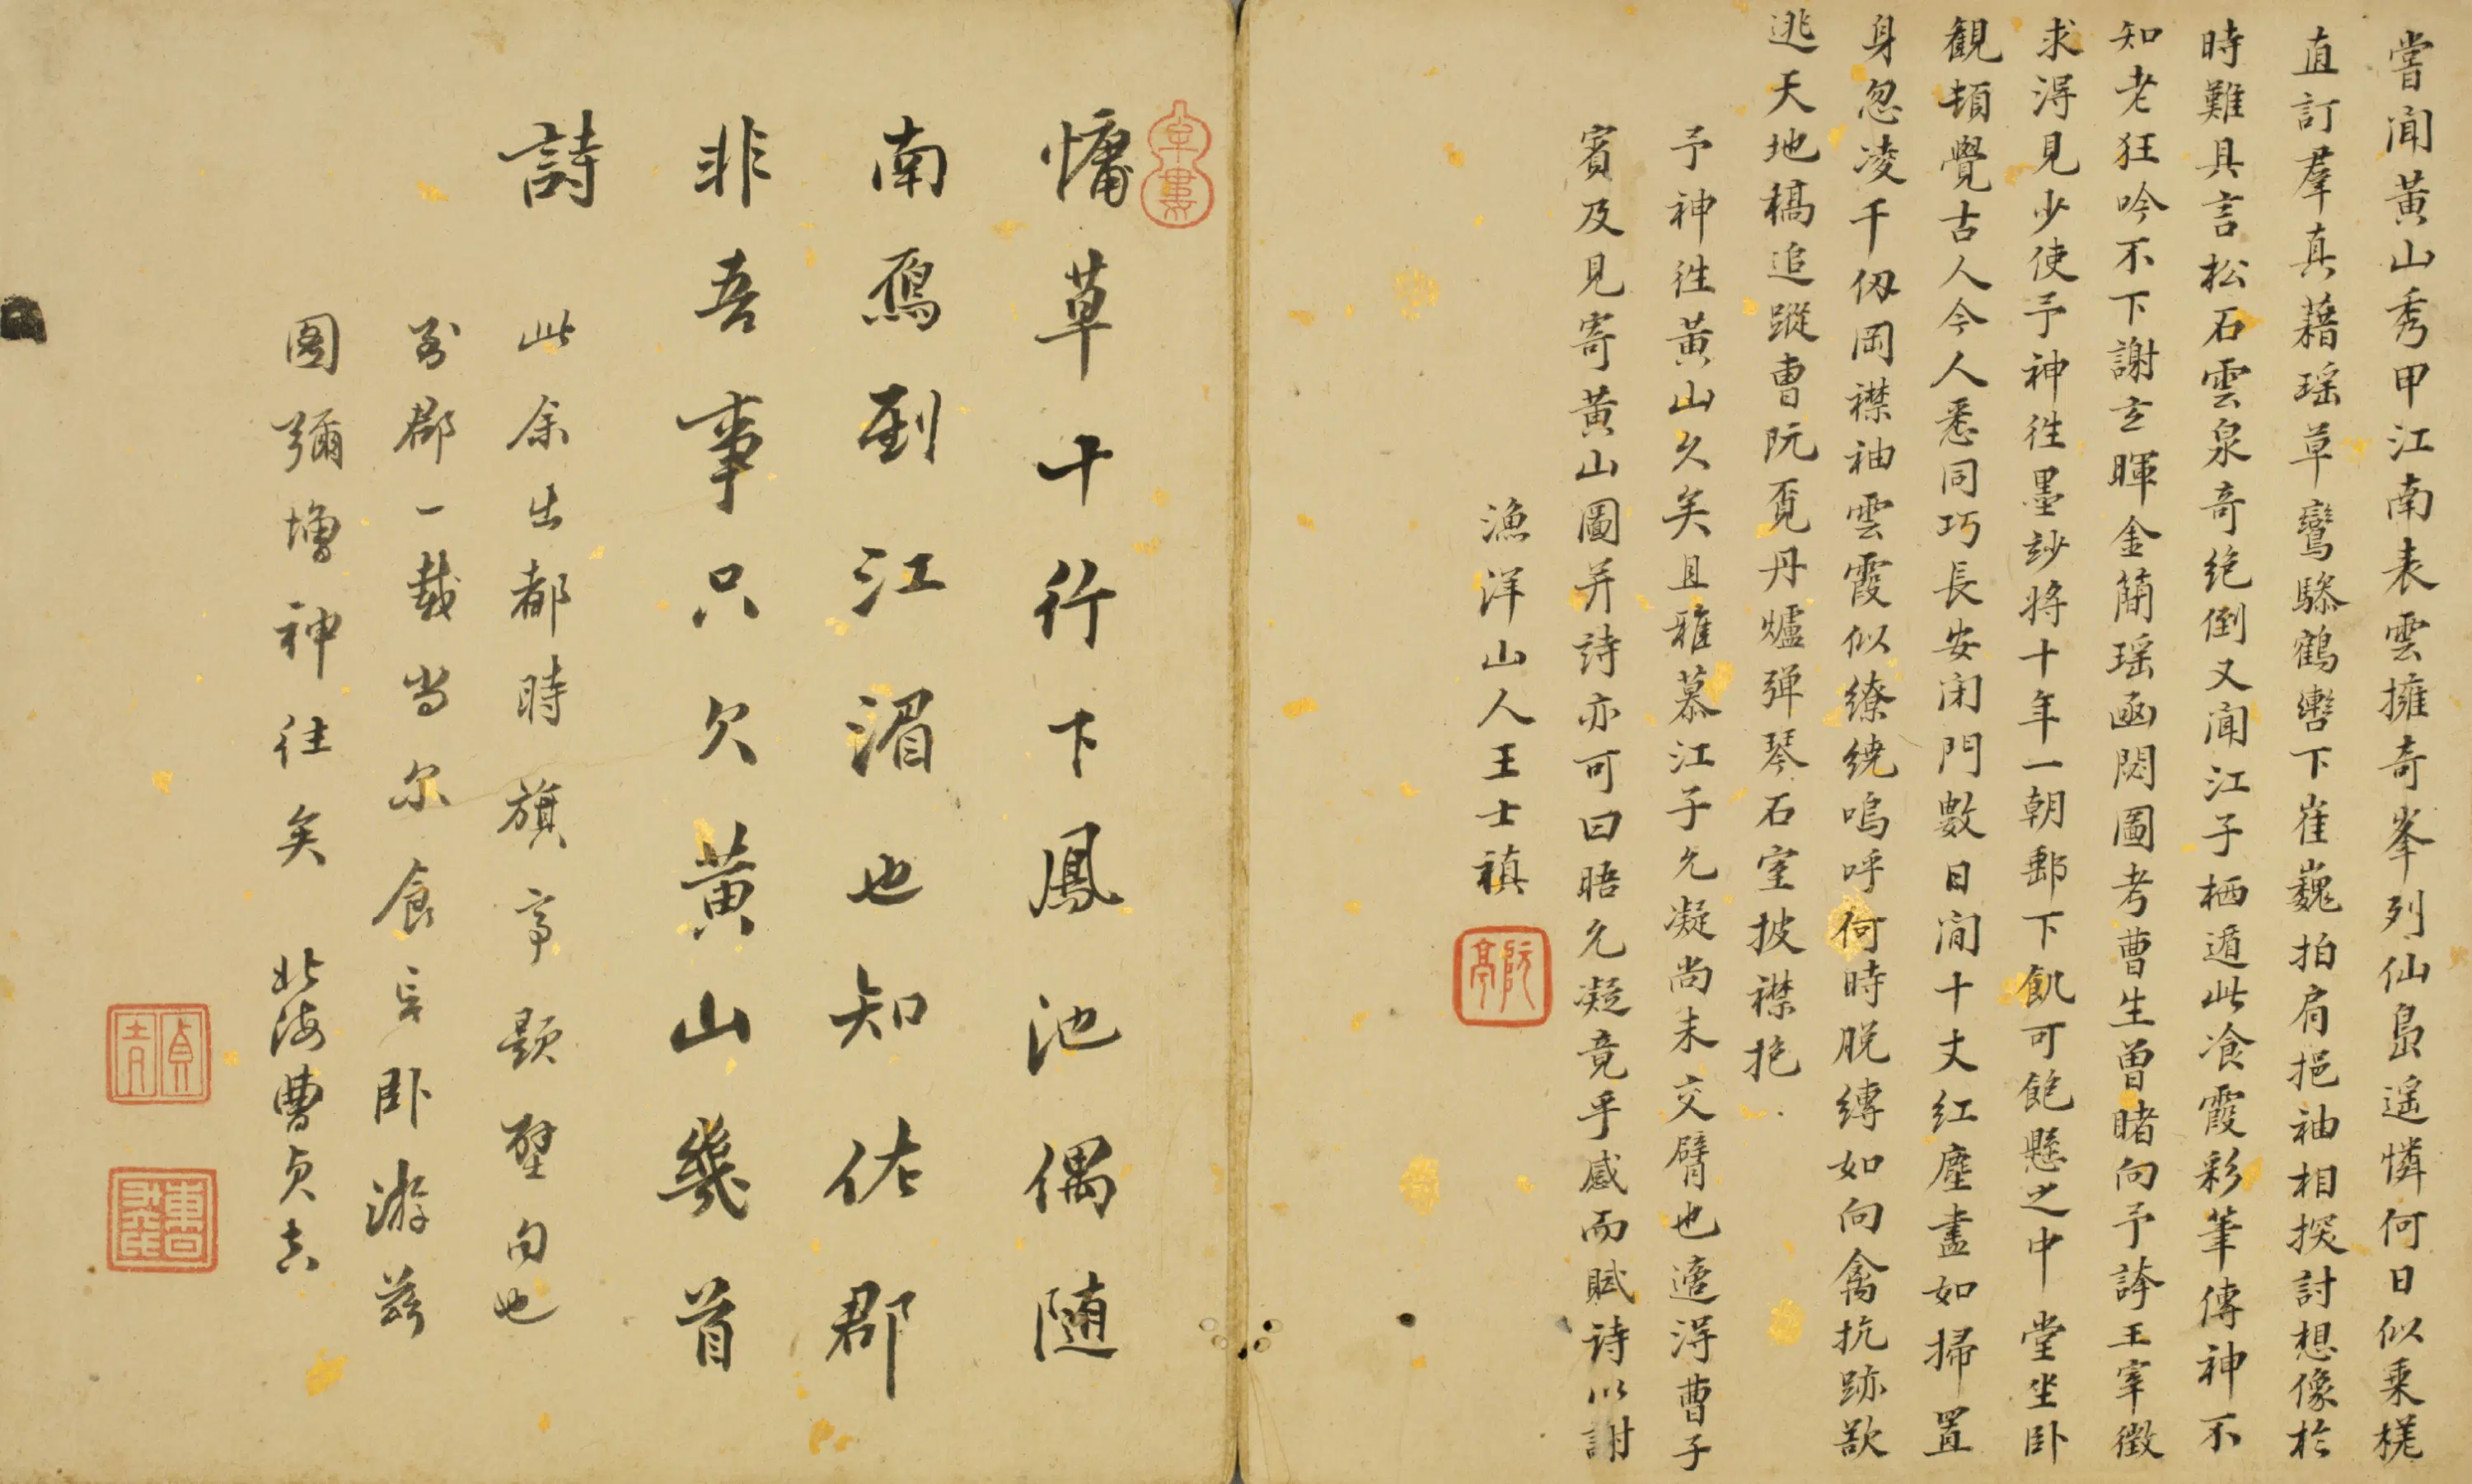 嘗聞黃山秀甲江南表雲擁奇峯列仙島遙憐何日似乘槎
直訂羣真藉瑶草鸞驂鶴轡下崔巍拍肩挹袖相探討想像於
時難具言松石雲泉奇絶倒又聞江子栖遁此飡霞彩筆傳神不
知老狂吟不下謝玄暉金蕳瑶函閟圖考曹生曽睹向予誇王宰徵
求淂見少使予神徃墨玅将十年一朝郵下飢可飽懸之中堂坐卧
観頓覺古人今人悉同巧長安闭門數日間十丈紅塵盡如掃置
身忽凌千仭岡襟袖雲霞似繚繞嗚呼何時脱縛如向禽抗跡欲
逃天地槁追蹤曹阮覓丹爐弹琴石室披襟抱
予神徃黃山久矣且雅慕江子允凝尚未交臂也適淂曹子
賓及見寄黃山圖并詩亦可曰晤允凝竟乎感而賦诗以謝
漁洋山人王士禛
阮亭
慵草十行下鳳池偶随
南鴈到江湄也知佐郡
非吾事只欠黄山幾首
詩
此余出都時旗亭題壁句也
劣郡一載当尔食言卧游兹
图彌增神往矣 北海曹贞吉
貞吉